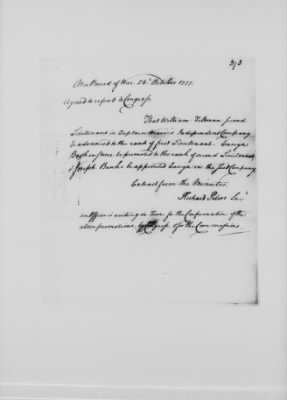 373
At a Board of War 24th October 1777.
Agreed to report to Congress
That William Tilman second
Lieutenant in Captain Independent Company
be advanced to the rank of first Lieutenant. Ensign
be promoted to the rank of second Lieutenant
& Joseph Banks be appointed Ensign in the said Company
Extract from the Minutes.
Richard Peters Secy
An Officer is waiting in Town for the Confirmation of the
above promotions, by Congress, & for the Commissions.